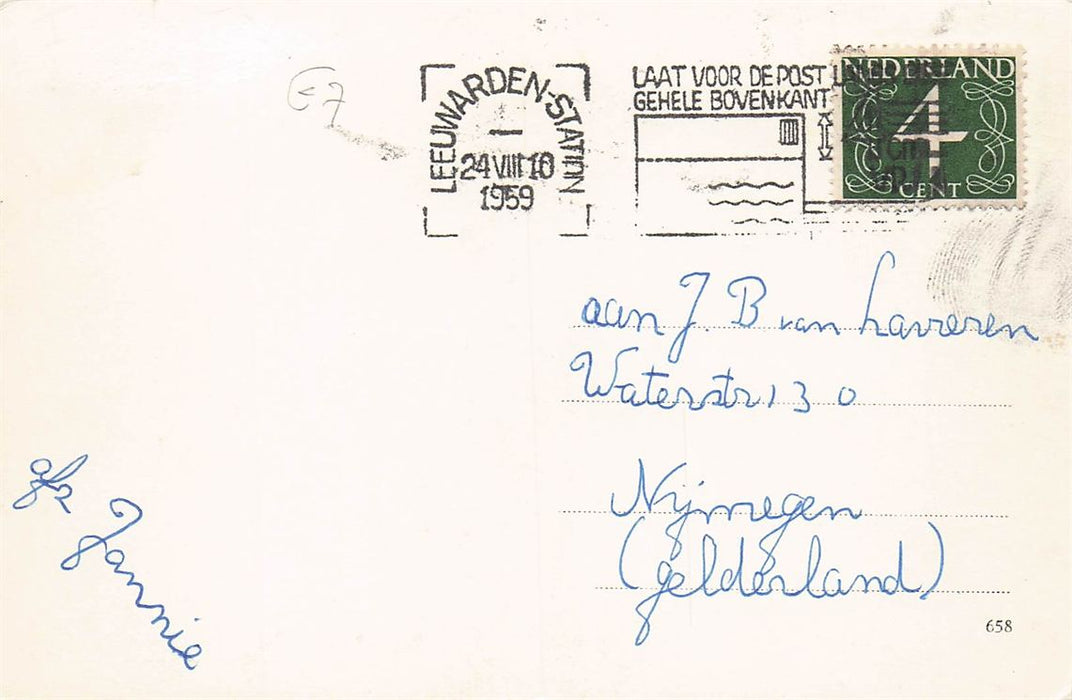 €7
LEEUWARDEN-STATION
24 VIII 10
1959
LAAT VOOR DE POST
GEHELE BOVENKANT
NEDERLAND
4
cm
CENT
aan J. B van Haveren
Waterstr 130
Nijmegen
(gelderland)
gfz Jannie
658